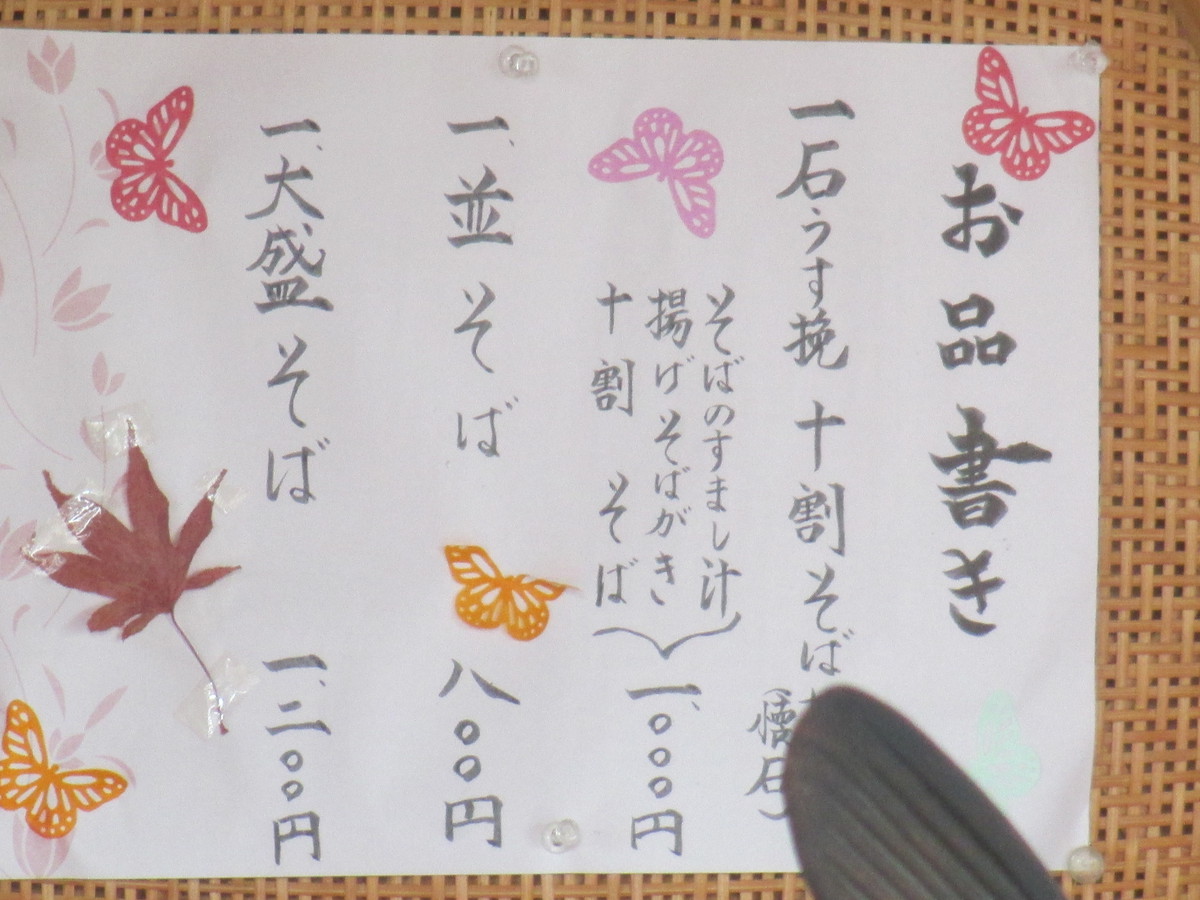 お品書き
一石うす挽十割そば
そばのすまし汁
揚げそばがき
十割そば
一、〇〇〇円
一、並そば 八〇〇円
一、大盛そば 一、二〇〇円